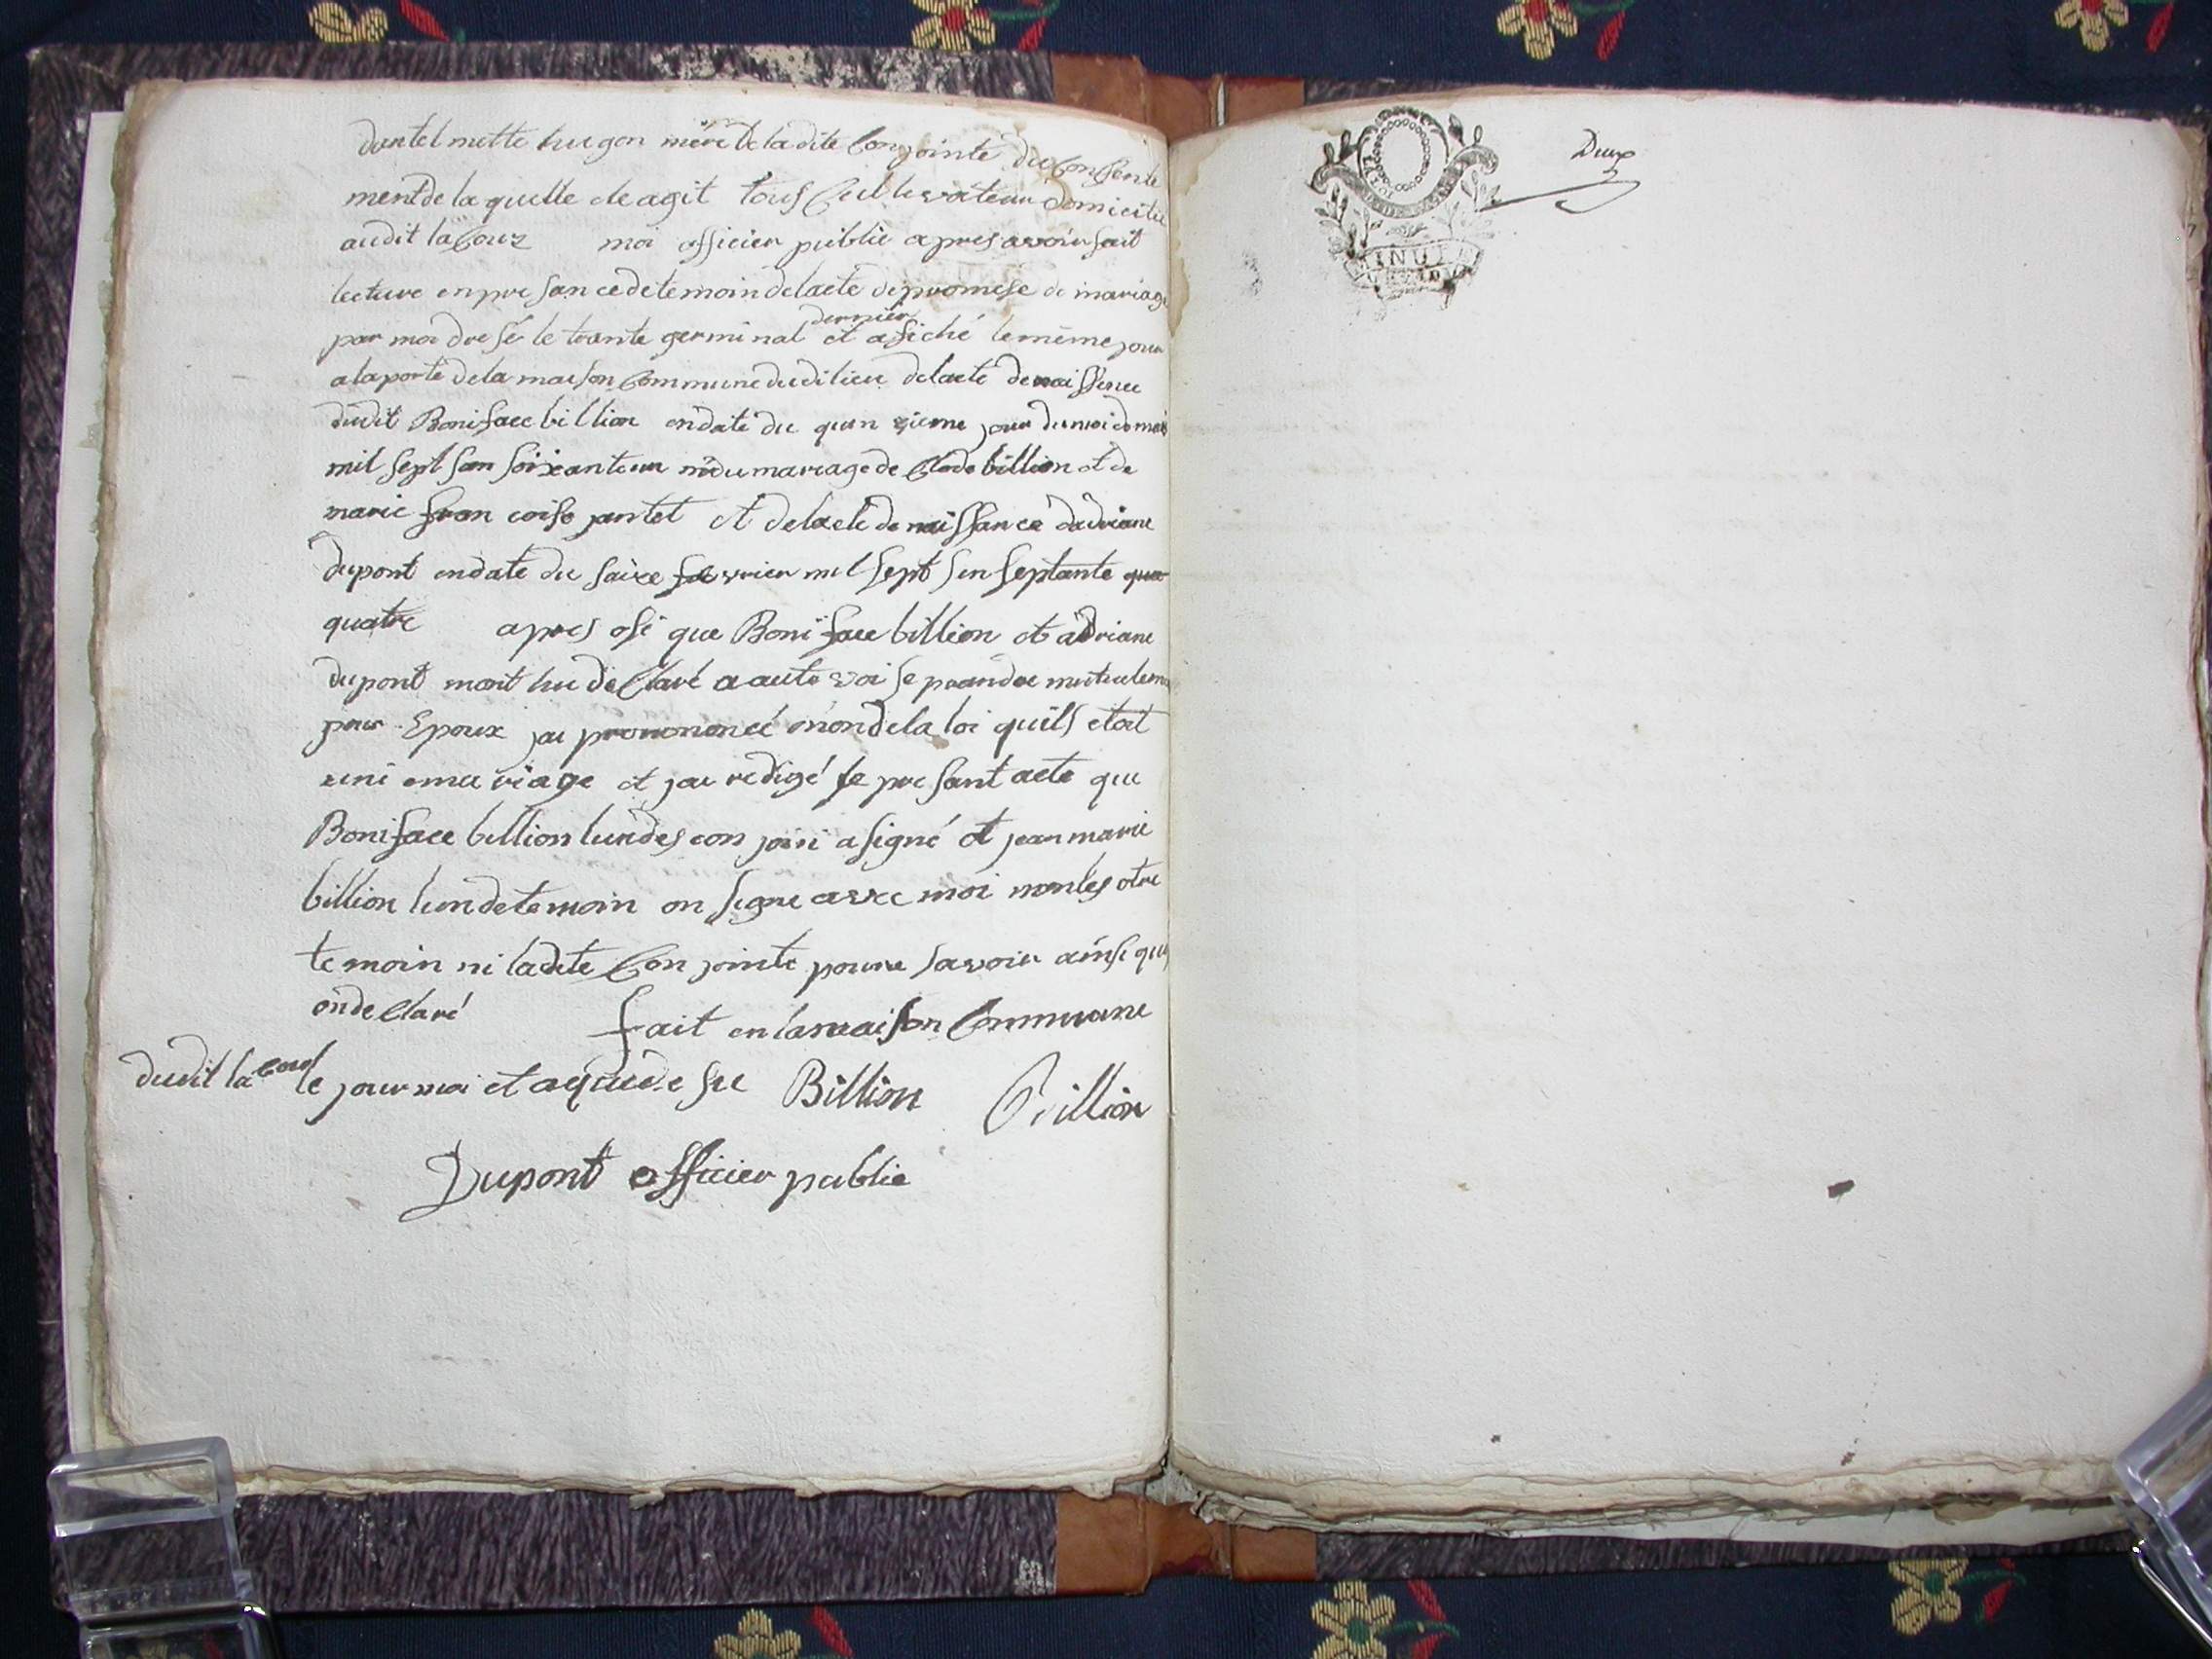 mette hugon mère de la dite Conjointe du Consente
ment de la quelle ele agit tous Cultivateur domicilié
audit la Cour moi officier public apres avoir fait
lecture en presance de temoin de lacte de promese de mariage
par moi dresé le trante germinal dernier et afiché le même jour
a la porte de la maison Commune dudi lieu de lacte de naissence
dudit Boniface billion en date du quin zieme jour du moi de mai
mil sept san soixante un né du mariage de Clode billion et de
marie fran coise jantet et de lacte de naissance dadriane
dupont en date du saize fevrier mil sept sen septante qua
quatre apres osi que Boniface billion et adriane
dupont mont hu déClaré a aute voi se prandre mutuelem
pour Epoux jai prononcé o non de la loi quils etoit
uni e mariage et jai redigé le presant acte que
Boniface billion lun des con join a signé et jean marie
billion lun de temoin on signe avec moi non les otre
te moin ni ladite Conjointe pour ne savoir ainsi que
on deClaré fait en la maison Commune
dudit la Cour le jour moi et an que de su Billion Billion
Dupont officier public
Deux